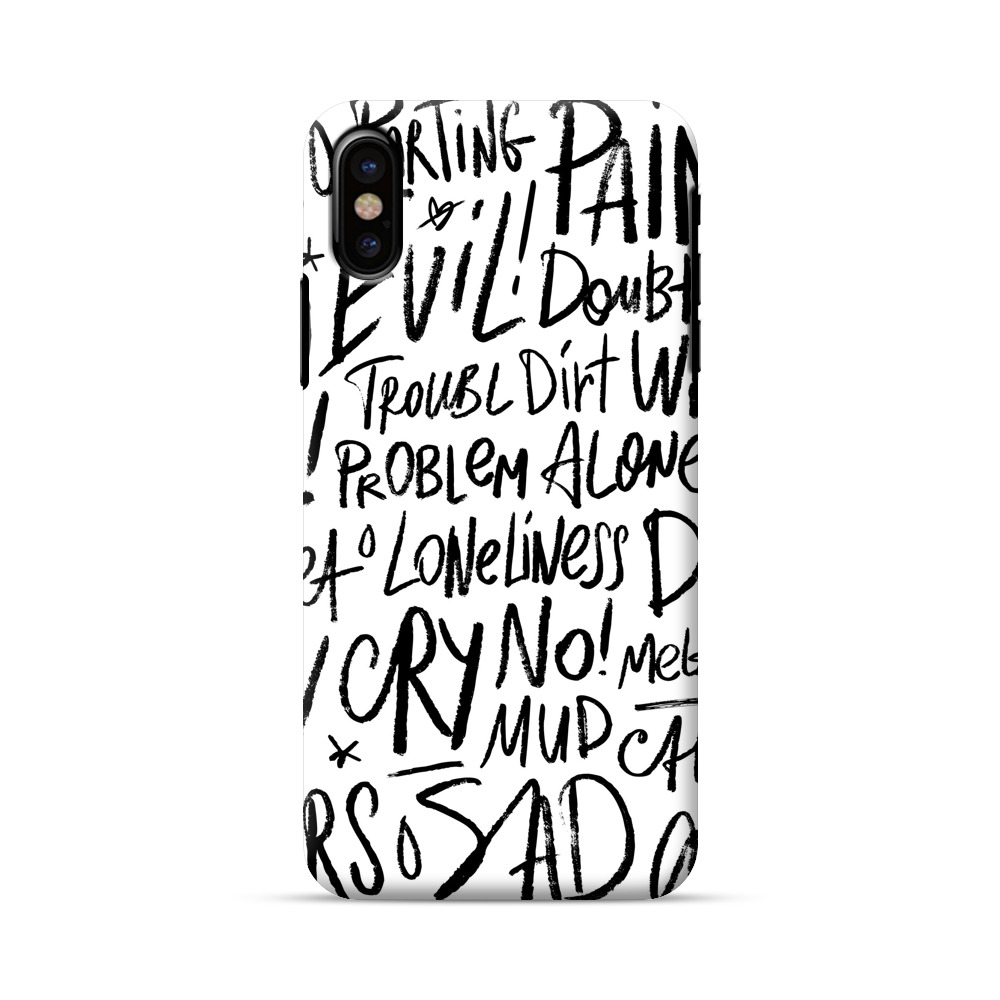 PARTING PAIN
EVIL! DOUBT
TROUBL DIRT
PROBLEM ALONE
LONELINESS D
CRY NO! MEL
MUD CH
RS SAD